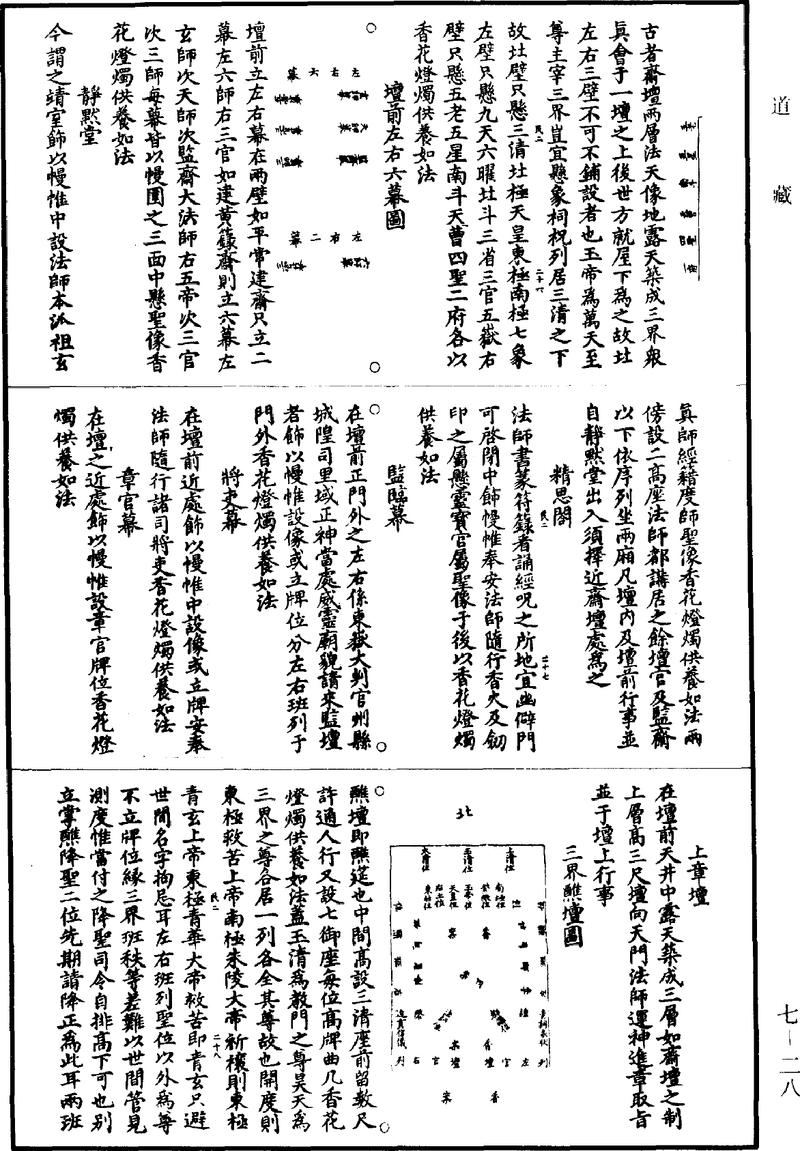 道藏
古者齋壇兩層法天像地露天築成三界衆
真會于一壇之上後世方就屋下為之故壯
左右三壁不可不鋪設者也玉帝為萬天至
尊主宰三界豈宜懸象祠祝列居三清之下
故壯壁只懸三清壯極天皇東極南極七象
左壁只懸九天六曜壯斗三省三官五嶽右
壁只懸五老五星南斗天曹四聖二府各以
香花燈燭供養如法
壇前左右六幕圖
左右六幕
左右二幕
壇前立左右幕在兩壁如平常建齋只立二
幕左六師右三官如建黃籙齋則立六幕左
玄師次天師次監齋大法師右五帝次三官
次三師每幕皆以幔圍之三面中懸聖像香
花燈燭供養如法
靜默堂
今謂之靖室飾以幔帷中設法師本派祖玄
真師經籍度師聖像香花燈燭供養如法兩
傍設二高座法師都講居之餘壇官及監齋
以下依序列坐兩廂凡壇內及壇前行事並
自靜默堂出入須擇近齋壇處為之
精思閣
法師書篆符籙者誦經呪之所地宜幽僻門
可啓閉中飾幔帷奉安法師隨行香火及劒
印之屬懸靈寶官屬聖像于後以香花燈燭
供養如法
監臨幕
在壇前正門外之左右係東嶽大判官州縣
城隍司里域正神當處威靈廟貌請來監壇
者飾以幔帷設像或立牌位分左右班列于
門外香花燈燭供養如法
將吏幕
在壇前近處飾以幔帷中設像或立牌安奉
法師隨行諸司將吏香花燈燭供養如法
章官幕
在壇之近處飾以幔帷設章官牌位香花燈
燭供養如法
上章壇
在壇前天井中露天築成三層如齋壇之制
上層高三尺壇向天門法師運神進章取旨
並于壇上行事
三界醮壇圖
北
上清位
玉清位
太清位
醮壇即醮筵也中間高設三清座前留數尺
許通人行又設七御座每位高牌曲几香花
燈燭供養如法蓋玉清為教門之尊昊天為
三界之尊各居一列各全其尊故也開度則
東極救苦上帝南極朱陵大帝祈禳則東極
青玄上帝東極青華大帝救苦即青玄只避
世間名字拘忌耳左右班列聖位以外為尊
不立牌位緣三界班秩等差難以世間管見
測度惟當付之降聖司令自排高下可也別
立掌醮降聖二位先期請降正為此耳兩班
七—二八